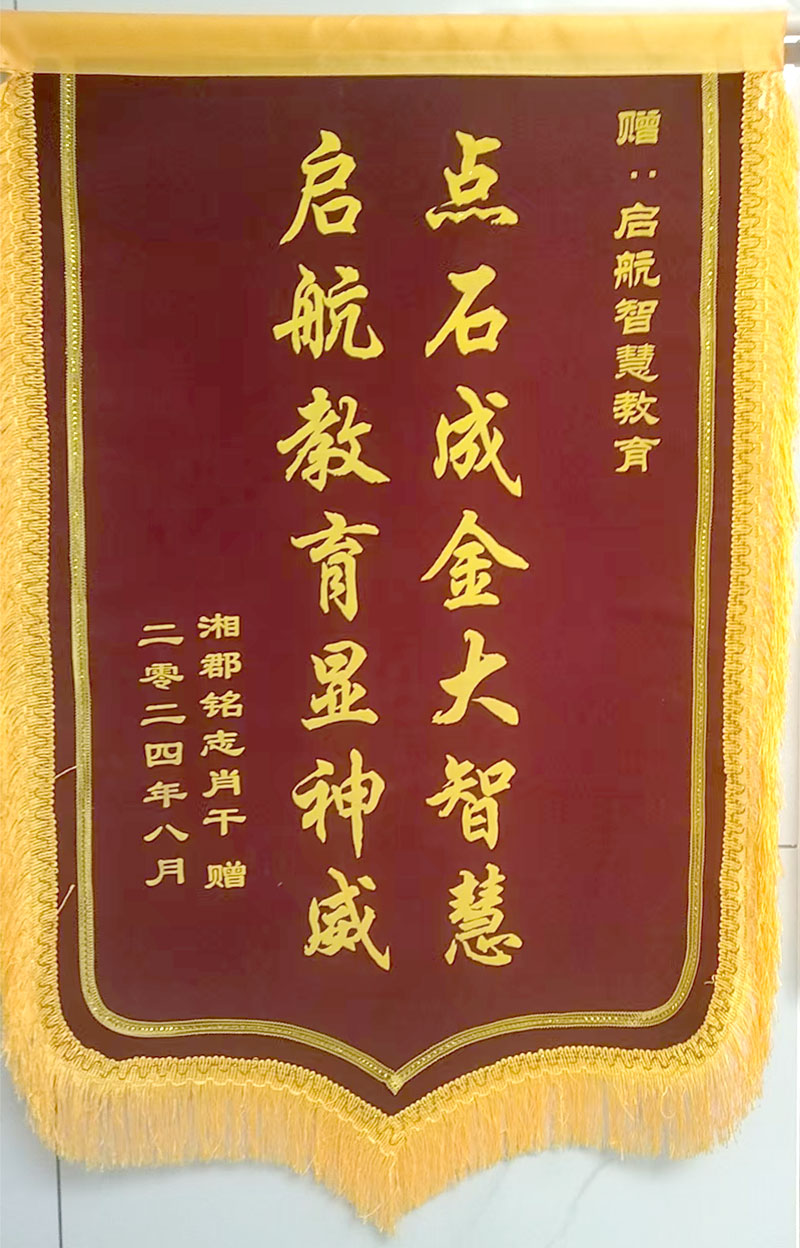 赠：启航智慧教育
点石成金大智慧
启航教育显神威
湘郡铭志肖干 赠
二零二四年八月